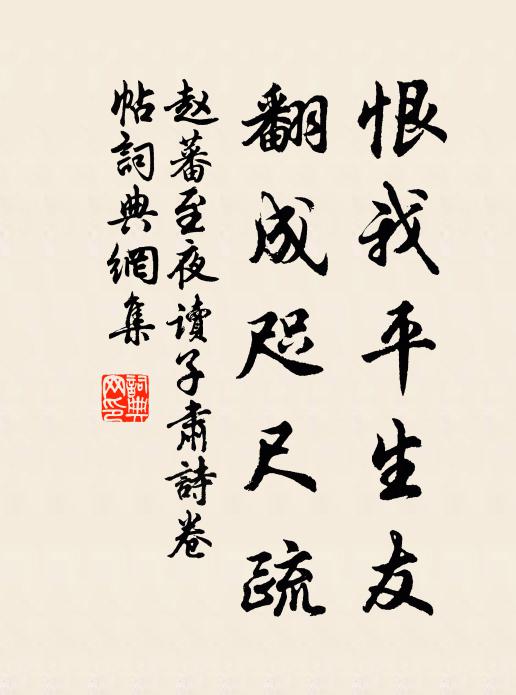 恨我平生友
翻成咫尺疏
赵蕃至夜读子肃詩卷
帖詞典網集
詞典網印